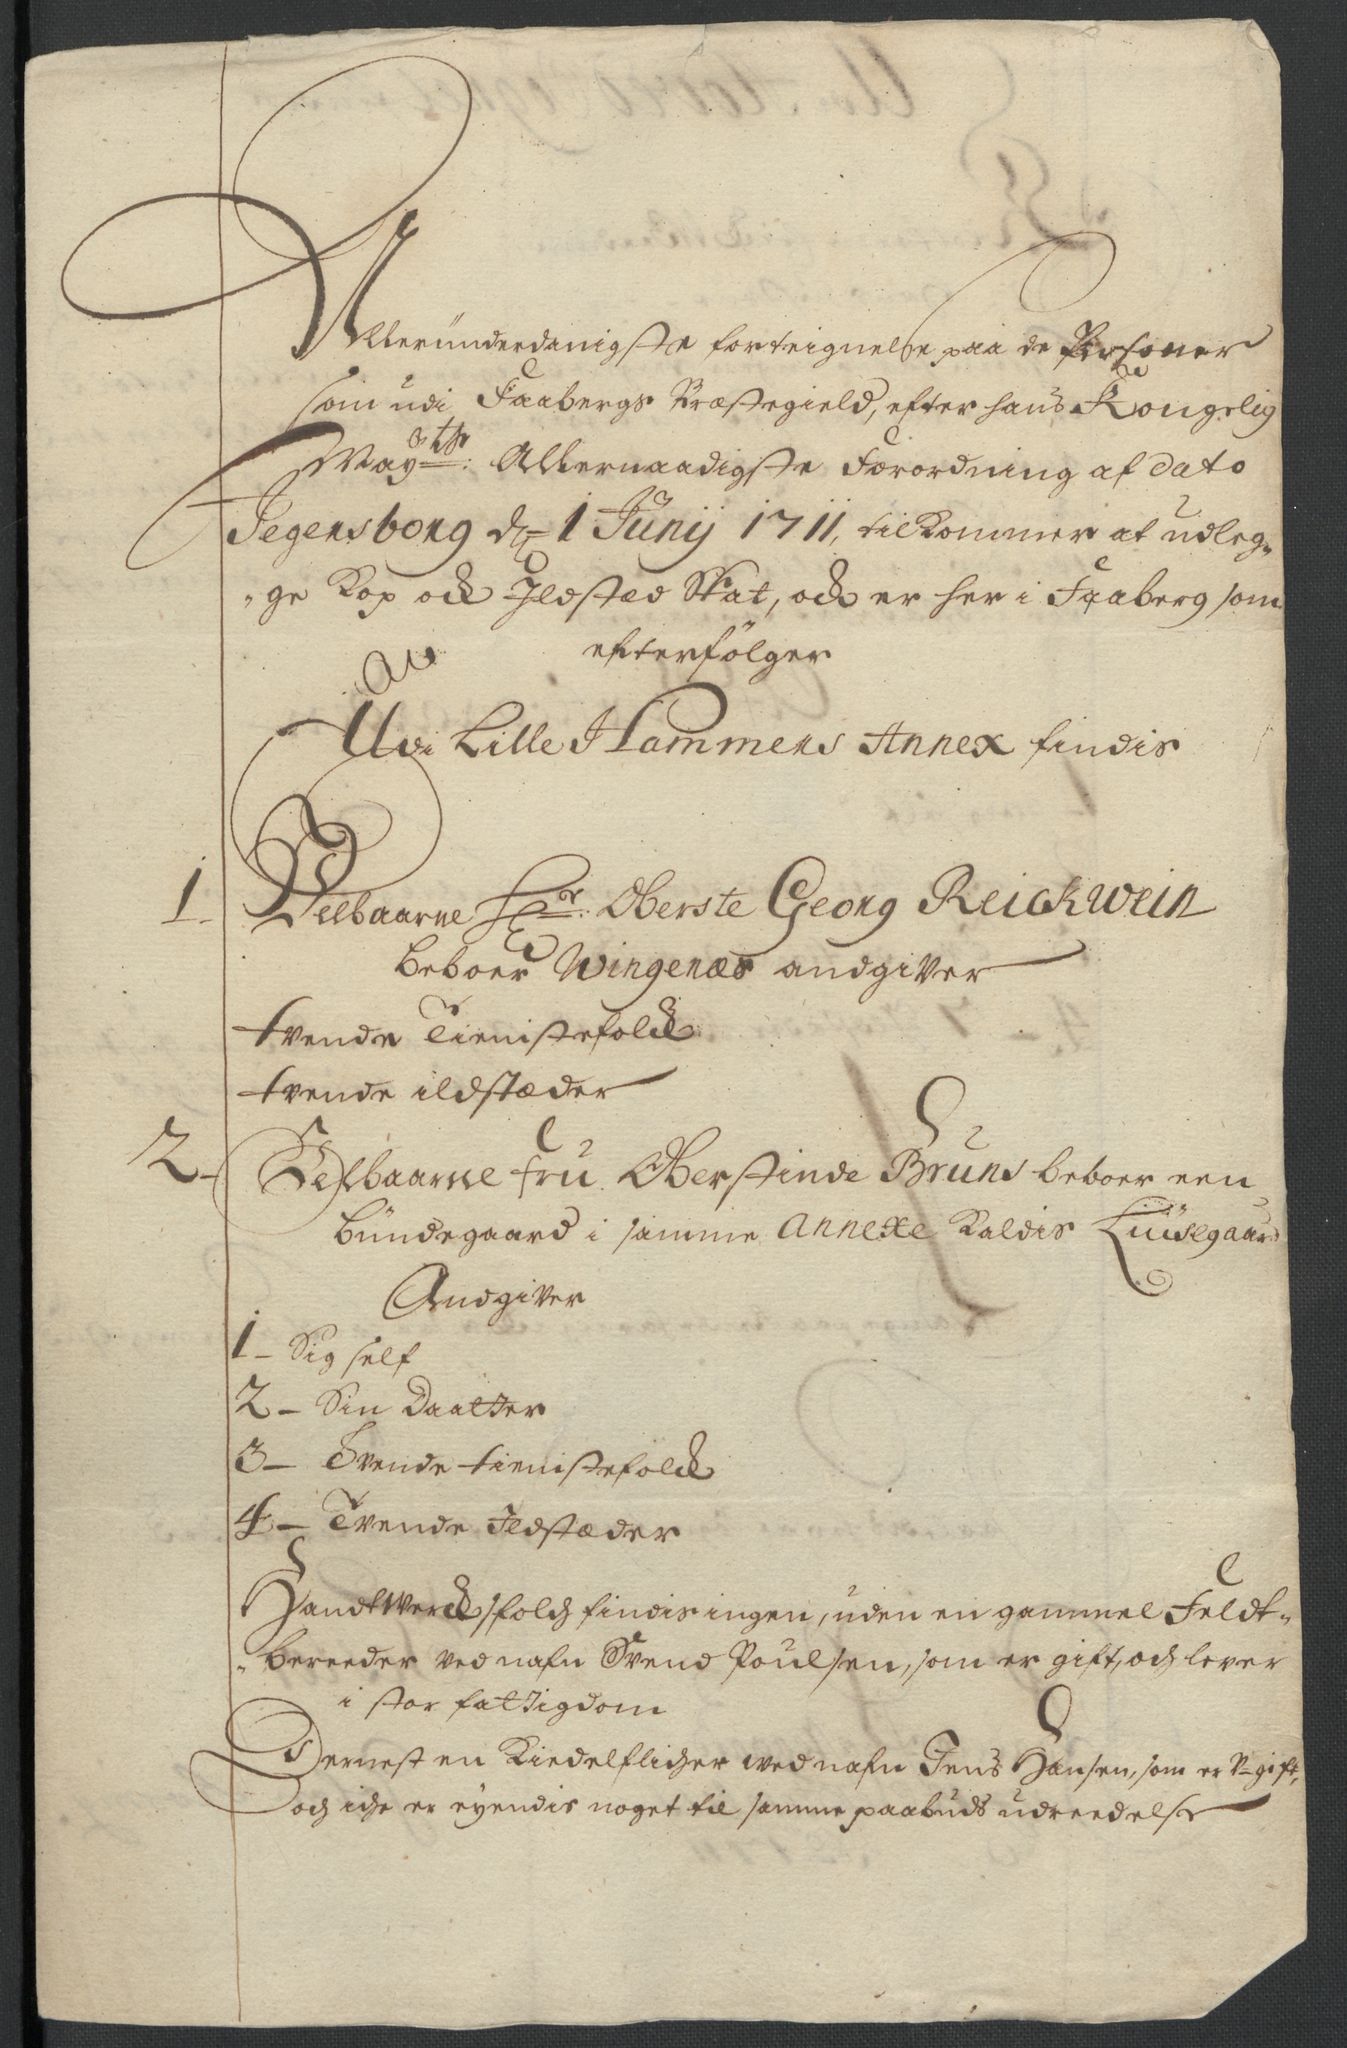 Alleründerdanigste forteignelse paa de Persóner
som udi Faabergs Præstegield, efter hans Kongelig
Mayts: Allernaadigste Forordning af dato
Jegersborg d: 1 Junij 1711, tilkommer at udleg-
ge Kop och Ildsted Skat, och er her i Faaberg som
efterfölger
Udi Lille Hammers Annex findis
1. Velbaarne Hr: Oberste Georg Reichwein
beboer Wingenæs andgiver
tvende Tienistefolch
tvende ildstæder
2. Velbaarne fru Oberstinde Bruns beboer een
bündegaard i samme Annexe kaldis Lüüsegaard
Andgiver
1 - Sig self
2 - Sin Daatter
3 - Tvende tienistefolch
4 - Tvende Ildstæder
Handtwerchsfolch findis ingen, uden en gammel Feldt-
bereeder ved nafn Svend Poulsen, som er gift, och lever
i stor fattigdom
Dernest en Kiedelflicher wed nafn Jens Hansen, som er V-gift,
och iche er eyendis noget til samme paabuds udreedelse